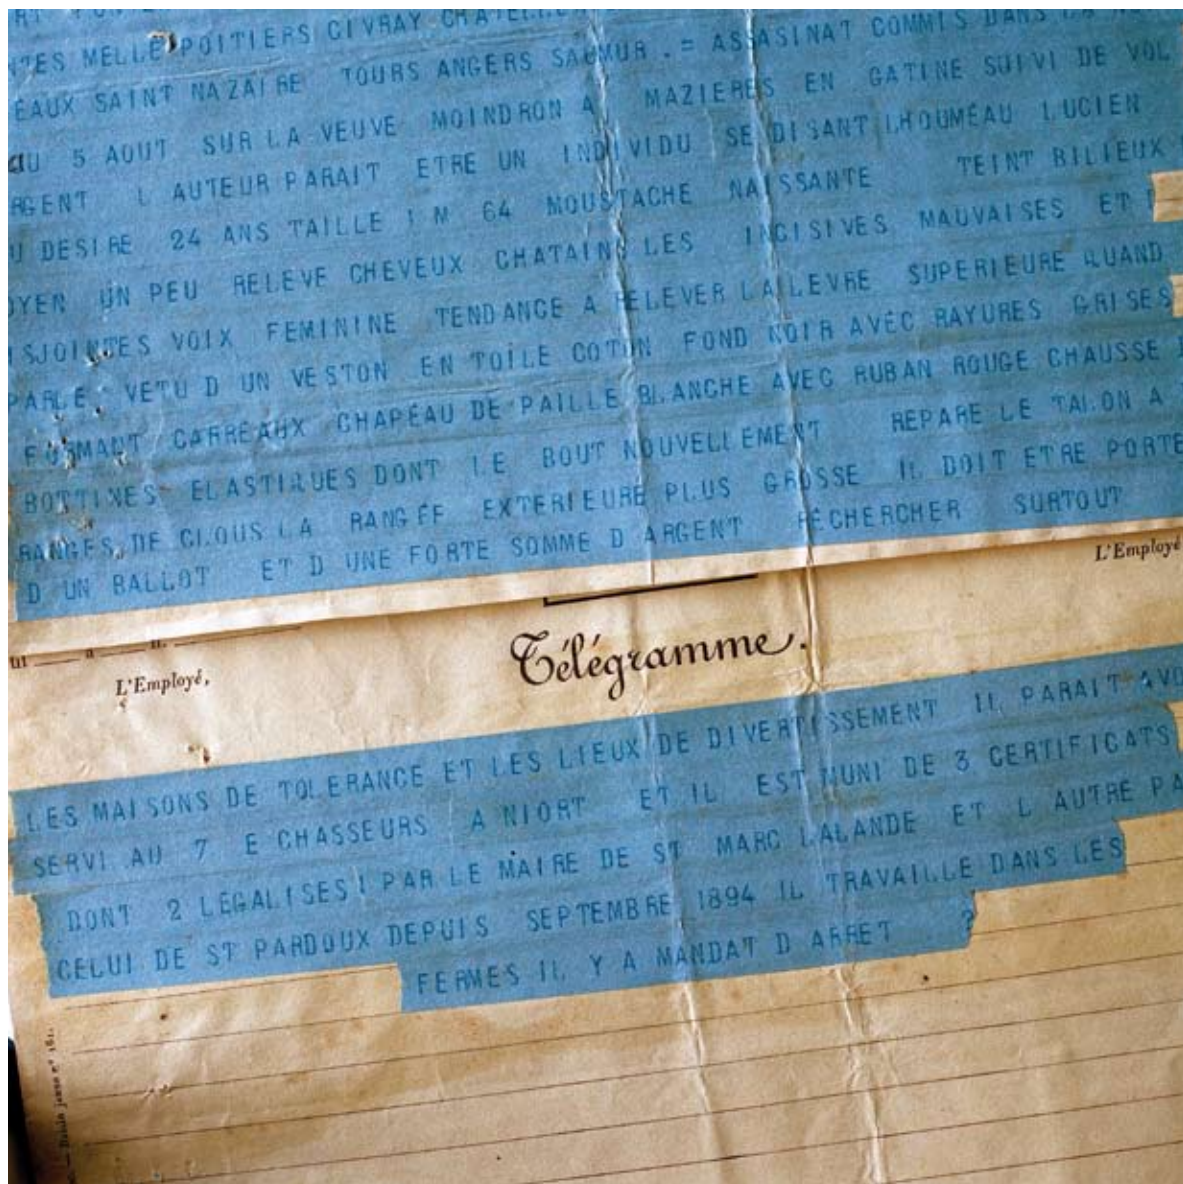 MELLE POITIERS CIVRAY
EAUX SAINT NAZAIRE TOURS ANGERS SAUMUR . = ASSASINAT COMMIS DANS LA
AU 5 AOUT SUR LA VEUVE MOINDRON A MAZIERES EN GATINE SUIVI DE VOL
RGENT L AUTEUR PARAIT ETRE UN INDIVIDU SE DISANT LHOUMEAU LUCIEN
U DESIRE 24 ANS TAILLE 1 M 64 MOUSTACHE NAISSANTE TEINT BILIEUX
OYEN UN PEU RELEVE CHEVEUX CHATAINS LES INCISIVES MAUVAISES ET
ISJOINTES VOIX FEMININE TENDANCE A RELEVER LA LEVRE SUPERIEURE QUAND
PARLE VETU D UN VESTON EN TOILE COTON FOND NOIR AVEC RAYURES GRISES
FORMANT CARREAUX CHAPEAU DE PAILLE BLANCHE AVEC RUBAN ROUGE CHAUSSE
BOTTINES ELASTIQUES DONT LE BOUT NOUVELLEMENT REPARE LE TALON A
RANGES DE CLOUS LA RANGEE EXTERIEURE PLUS GROSSE IL DOIT ETRE PORTE
D UN BALLOT ET D UNE FORTE SOMME D ARGENT RECHERCHER SURTOUT
L'Employé
L'Employé,
Télégramme.
LES MAISONS DE TOLERANCE ET LES LIEUX DE DIVERTISSEMENT IL PARAIT AVO
SERVI AU 7 E CHASSEURS A NIORT ET IL EST MUNI DE 3 CERTIFICATS
DONT 2 LEGALISES PAR LE MAIRE DE ST MARC LALANDE ET L AUTRE PA
CELUI DE ST PARDOUX DEPUIS SEPTEMBRE 1894 IL TRAVAILLE DANS LES
FERMES IL Y A MANDAT D ARRET ?